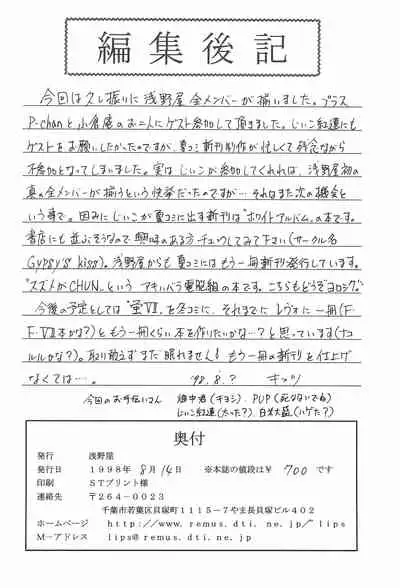 編集後記
今回は久し振りに浅野屋全メンバーが揃いました。プラス
P-chanと小倉庵のお二人にゲスト参加して頂きました。じぃこ紅蓮にも
ゲストをお願いしたかったのですが、夏コミ新刊制作が忙しくて残念ながら
不参加となってしまいました。実はじぃこが参加してくれれば、浅野屋初の
真の全メンバーが揃うという快挙だったのですが…それはまた次の機会と
いう事で。因みにじぃこが夏コミに出す新刊は"ホワイトアルバム"の本です。
書店にも並ぶそうなので興味のある方チェックしてみて下さい(サークル名
Gypsy's kiss)。浅野屋からも夏コミにはもう一冊新刊発行しています。
"スズメがCHUN"という アキハバラ電脳組の本です。こちらもどうぞヨロシク。
今後の予定としては"蛍VII"を冬コミに、それまでにレヴォに一冊(F・
F・VII本かな?)ともう一冊くらい本を作りたいかな…?と思っています(ナコ
ルルかな?)。取り敢えずまだ眠れません!もう一冊の新刊を仕上げ
なくては…。 '98.8.? キヨシ
今回のお手伝いさん 畑中君(キヨシ) PUP(死なないでね)
じぃこ紅蓮(だった?) 白米大盛(ハゲた?)
奥付
発行 浅野屋
発行日 1998年8月14日 ※本誌の値段は¥700です
印刷 STプリント様
連絡先 〒264-0023
千葉市若葉区貝塚町1115-7やま長貝塚ビル402
ホームページ http://www.remus.dti.ne.jp/~lips
M-アドレス lips@remus.dti.ne.jp